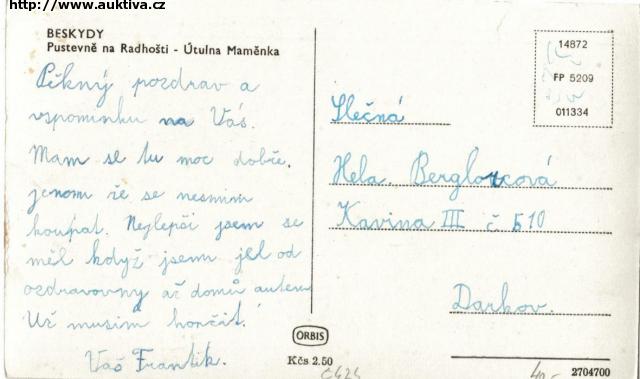 http://www.auktiva.cz
BESKYDY
Pustevně na Radhošti - Útulna Maměnka
Pěkný pozdrav a
vzpomínku na Vás.
Mam se tu moc dobře,
jenom že se nesmim
koupat. Nejlepši jsem se
měl když jsem jel od
ozdravovny až domů autem
Už musim končit.
Váš Frantik.
14872
FP 5209
011334
Slečná
Hela Berglovcová
Karvina III č 510
Darkov.
ORBIS
Kčs 2.50
40,-
2704700